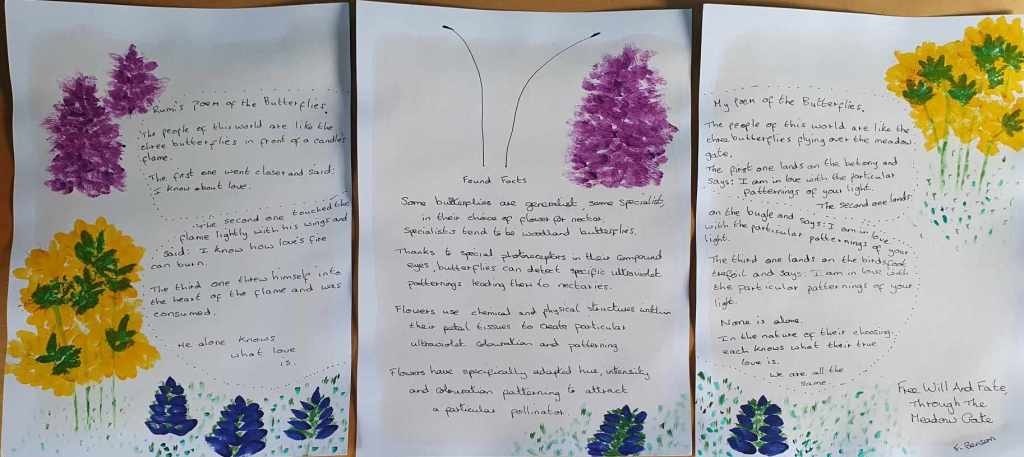 Rumi's Poem of the Butterflies.
The people of this world are like the
three butterflies in front of a candle's
flame.
The first one went closer and said:
I know about love.
The second one touched the
flame lightly with his wings and
said: I know how love's fire
can burn.
The third one threw himself into
the heart of the flame and was
consumed.
He alone knows
what love
is.
Found Facts
Some butterflies are generalist, some specialist,
in their choice of flower for nectar.
Specialists tend to be woodland butterflies.
Thanks to special photoreceptors in their compound
eyes, butterflies can detect specific ultraviolet
patternings leading them to nectaries.
Flowers use chemical and physical structures within
their petal tissues to create particular
ultraviolet colouration and patterning
Flowers have specifically adapted hue, intensity
and colouration patterning to attract
a particular pollinator.
My poem of the Butterflies.
The people of this world are like the
three butterflies flying over the meadow
gate.
The first one lands on the betony and
says: I am in love with the particular
patternings of your light.
The second one lands
on the bugle and says: I am in love
with the particular patternings of your
light.
The third one lands on the birdsfoot
trefoil and says: I am in love with
the particular patternings of your
light.
None is alone.
In the nature of their choosing
each knows what their true
love is.
We are all the
same.
Free Will And Fate,
Through The
Meadow Gate
F. Benson